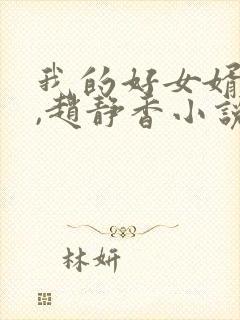 我的好女婿
,趙静香小說
林妍